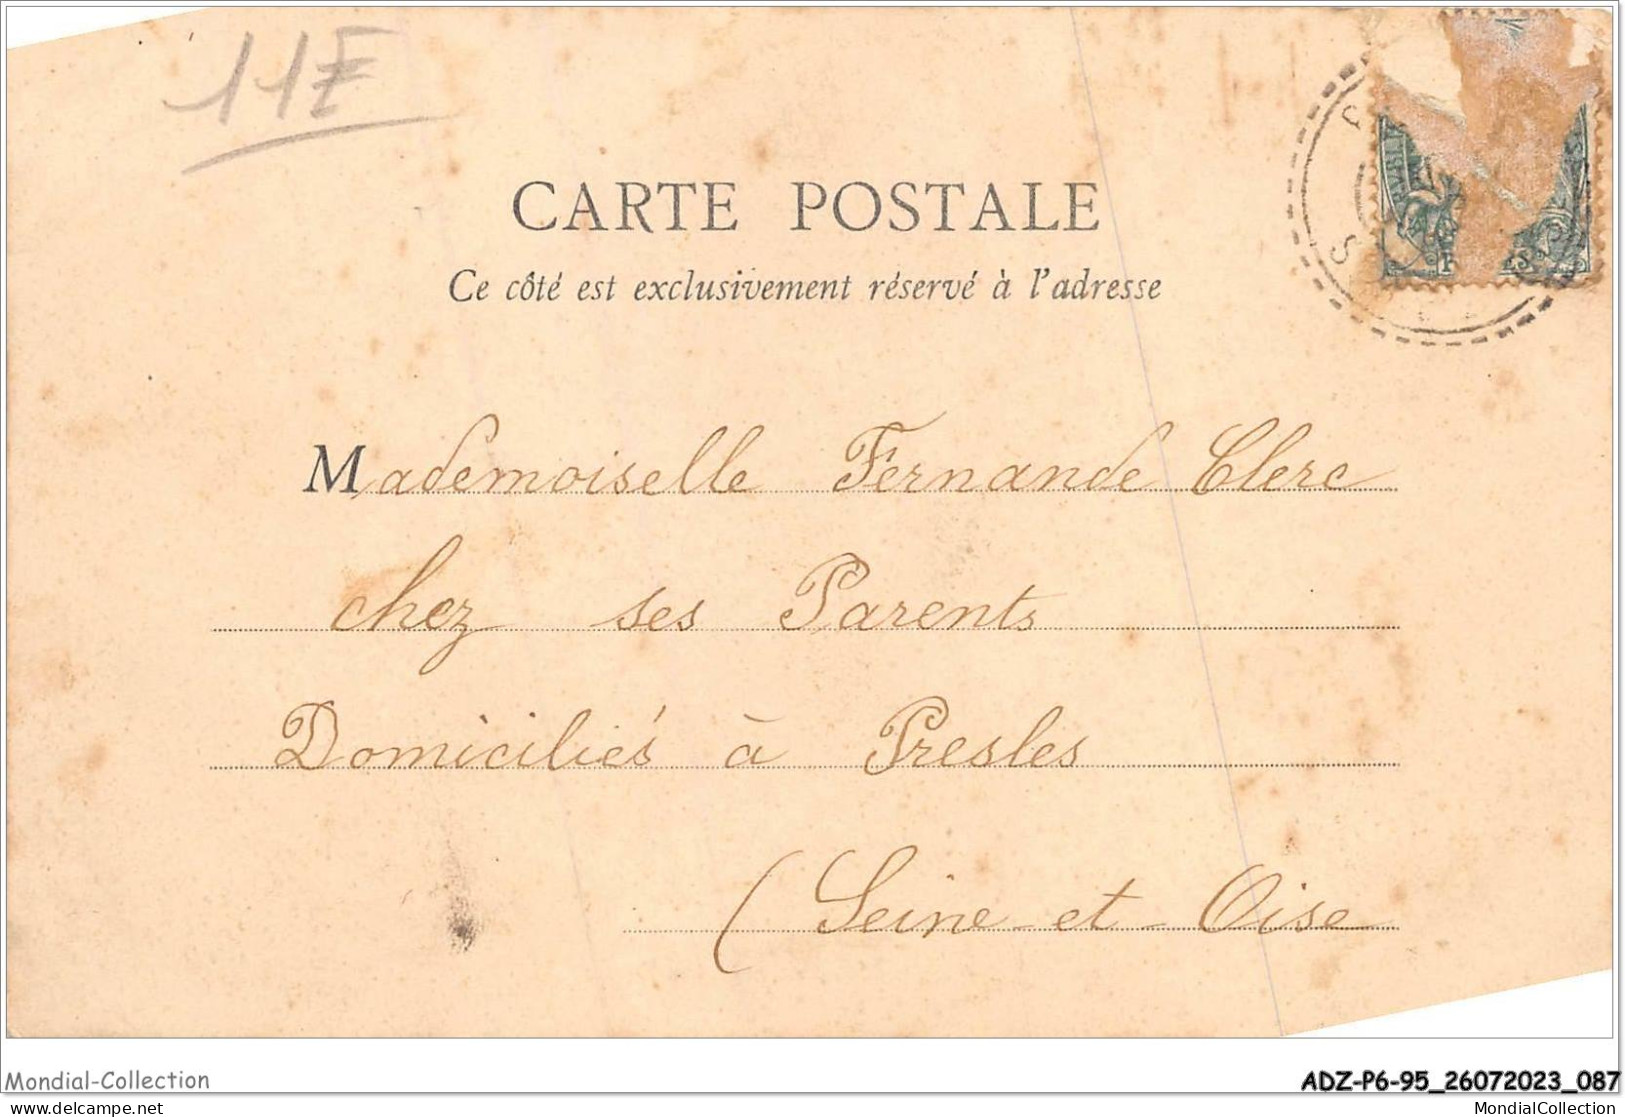 11E
CARTE POSTALE
Ce côté est exclusivement réservé à l'adresse
Mademoiselle Fernande Clerc
chez ses Parents
Domiciliés à Presles
(Seine-et-Oise
Mondial-Collection
ADZ-P6-95_26072023_087
delcampe.net
MondialCollection